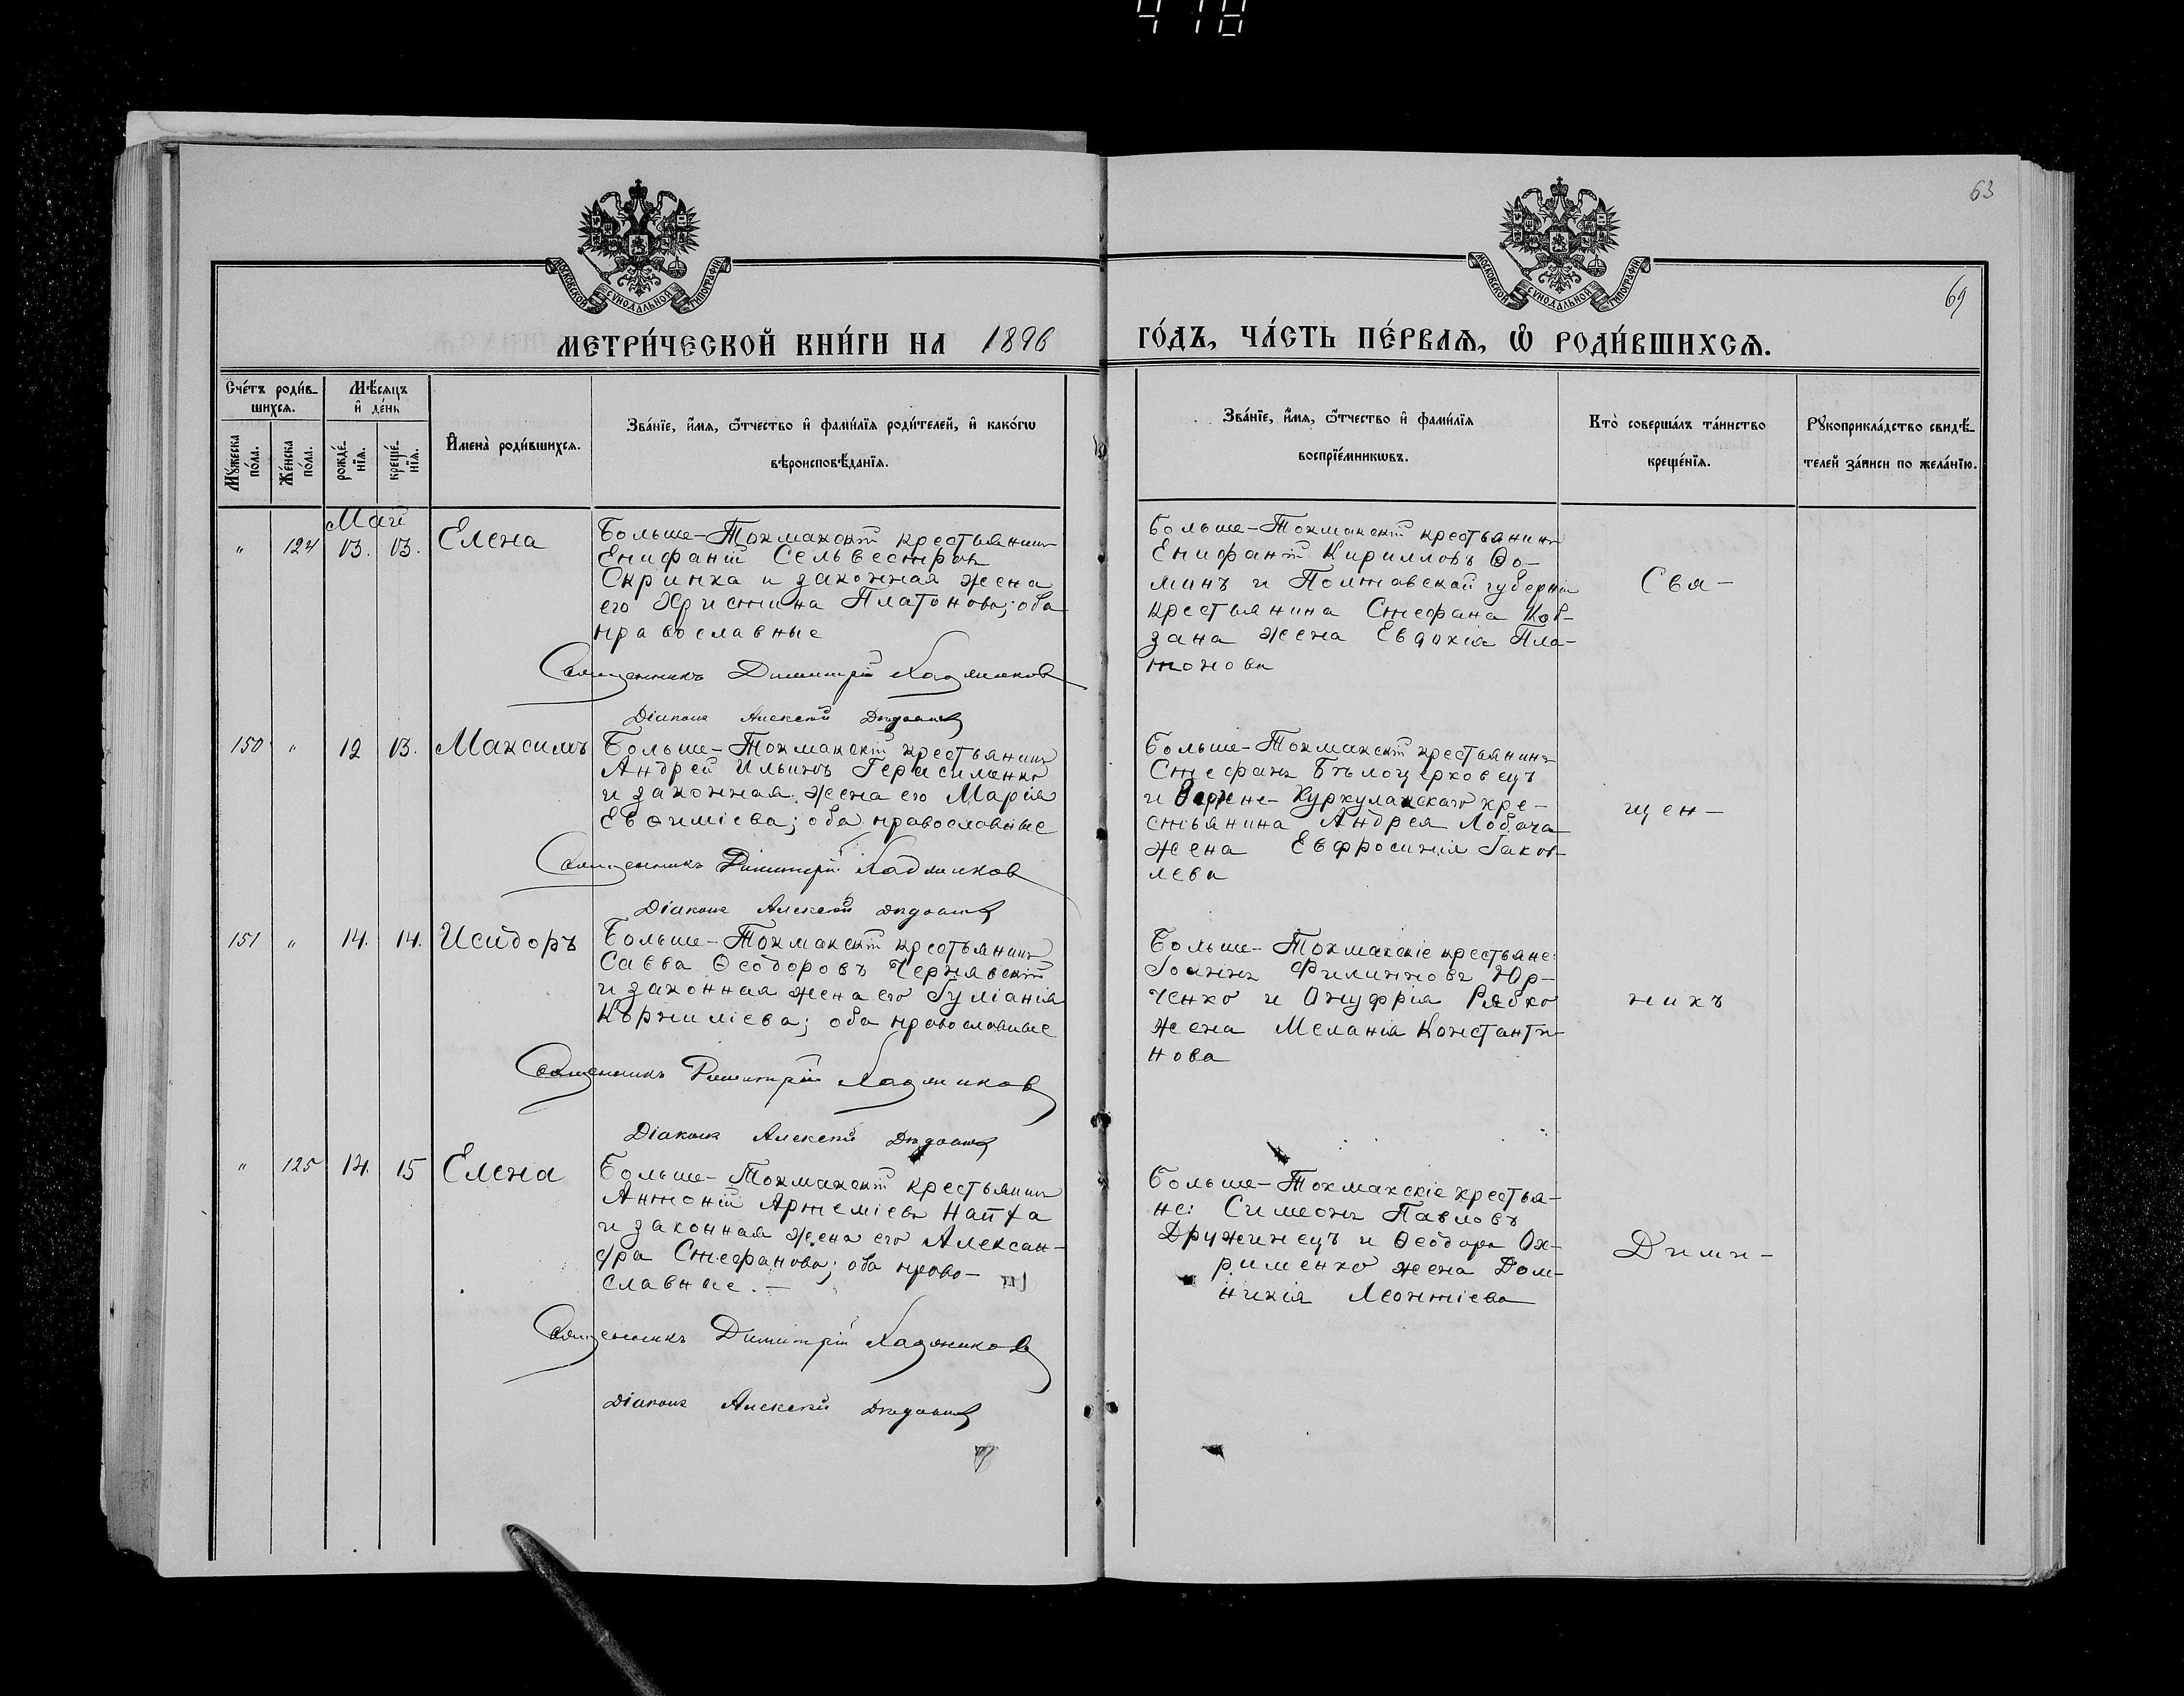 418
63
69
МОСКОВСКОЙ СѴНОДАЛЬНОЙ ТИПОГРАФІИ
МОСКОВСКОЙ СѴНОДАЛЬНОЙ ТИПОГРАФІИ
МЕТРИ́ЧЕСКОЙ КНИ́ГИ НА 1896
ГО́ДЪ, ЧА́СТЬ ПЕ́РВАѦ, Ѿ РОДИ́ВШИХСѦ.
Сче́тъ роди́в-
шихсѧ.
Мѣ́сѧцъ
и҆ де́нь
Мꙋ́жеска
по́ла.
Же́нска
по́ла.
рожде́-
нїѧ.
креще́-
нїѧ.
И҆мена̀ роди́вшихсѧ.
Зва́нїе, и҆́мѧ, ѻ҆́тчество и҆ фами́лїѧ роди́телей, и҆ како́гѡ
вѣроисповѣ́данїѧ.
Зва́нїе, и҆́мѧ, ѻ҆́тчество и҆ фами́лїѧ
воспрїе́мникѡвъ.
Кто̀ соверша́лъ та́инство
креще́нїѧ.
Рꙋкоприкла́дство свидѣ́-
телей за́писи по жела́нїю.
Май
" 124 13. 13. Елена
Больше-Токмакскій крестьянинъ
Епифаній Сельвестровъ
Скрипка и законная жена
его Христина Платонова; оба
православные
Священникъ Димитрій
Діаконъ Алексѣй
Больше-Токмакскій крестьянинъ
Епифаній Кирилловъ Ѳо-
минъ и Полтавской губерніи
крестьянина Стефана Ков-
зана жена Евдокія Пла-
тонова
Свя-
150 " 12 13. Максимъ
Больше-Токмакскій крестьянинъ
Андрей Ильинъ Герасименко
и законная жена его Марія
Евѳиміева; оба православные
Священникъ Димитрій
Діаконъ Алексѣй
Больше-Токмакскій крестьянинъ
Стефанъ Бѣлоцерковецъ
и Верхне-Куркулакскаго кре-
стьянина Андрея Лобача
жена Евфросинія Іаков-
лева
щен-
151 " 14. 14. Исидоръ
Больше-Токмакскій крестьянинъ
Савва Ѳеодоровъ Чернявскій
и законная жена его Іуліанія
Корниліева; оба православные
Священникъ Димитрій
Діаконъ Алексѣй
Больше-Токмакскіе крестьяне:
Іоаннъ Филипповъ Юр-
ченко и Онуфрія Рябко
жена Меланія Константи-
нова
никъ
" 125 14. 15 Елена
Больше-Токмакскій крестьянинъ
Антоній Артеміевъ
и законная жена его Алексан-
дра Стефанова; оба право-
славные.-
Священникъ Димитрій
Діаконъ Алексѣй
Больше-Токмакскіе крестья-
не: Симеонъ Павловъ
Дружинецъ и Ѳеодора Ох-
рименко жена Дом-
никія Леонтіева
Дими-